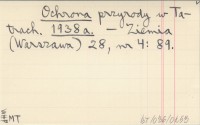 Ochrona przyrody w Ta-
trach. 1938a. — Ziemia
(Warszawa) 28, nr 4: 89.
MT